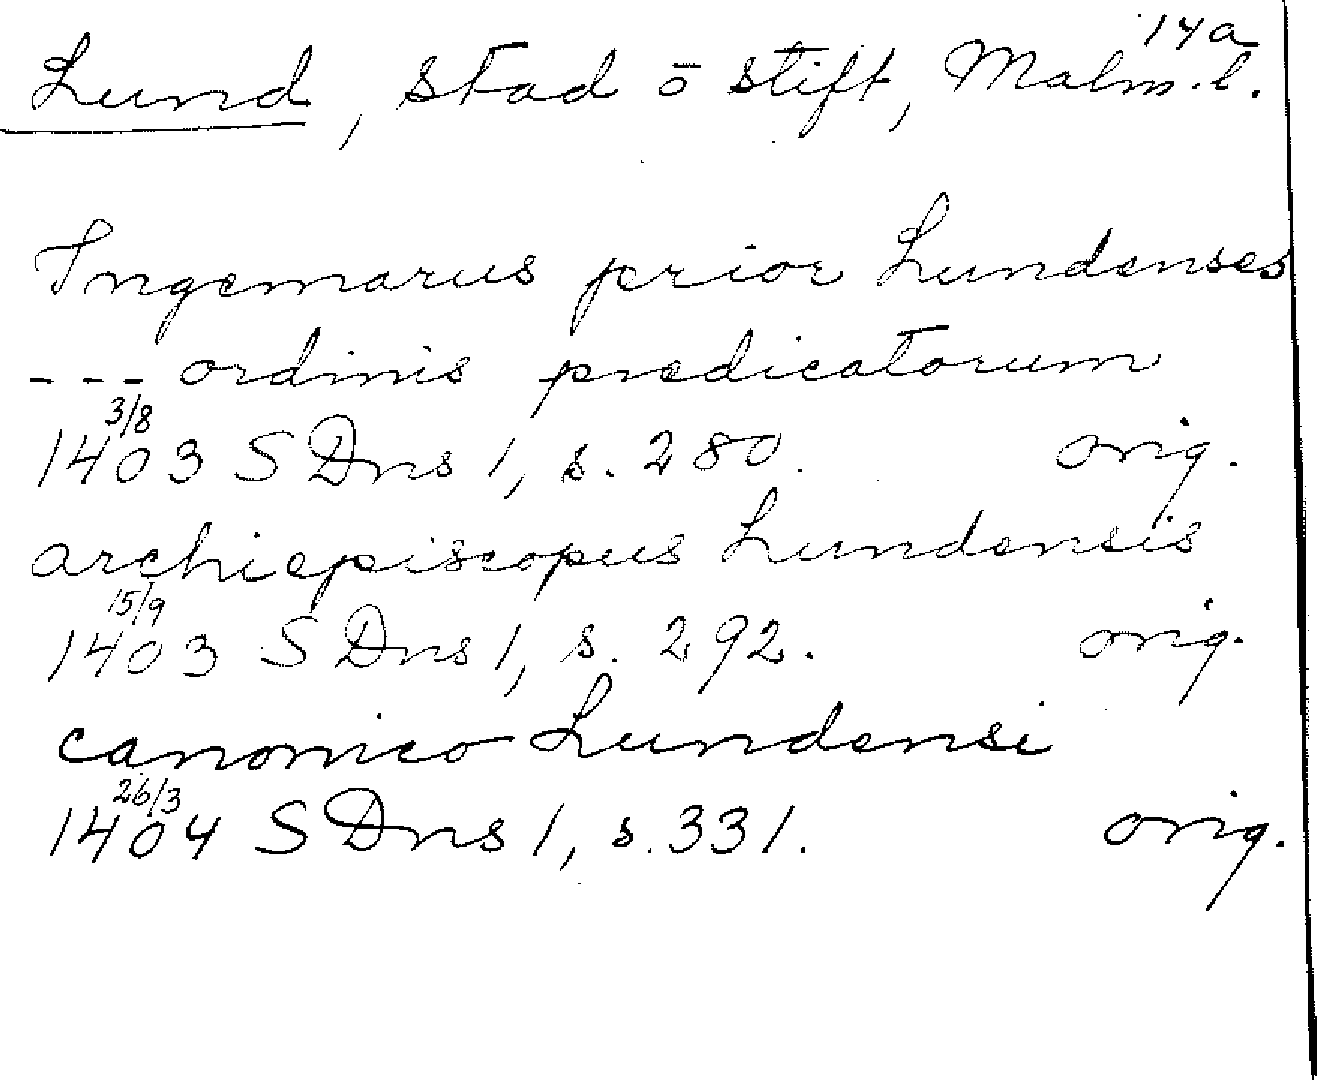 14a
Lund, stad ō stift, Malm. l.
Ingemarus prior Lundenses
--- ordinis predicatorum
3/8
1403 S Dns 1, s. 280. orig.
archiepiscopus Lundensis
15/9
1403 S Dns 1, s. 292. orig.
canonico Lundensi
26/3
1404 S Dns 1, s. 331. orig.